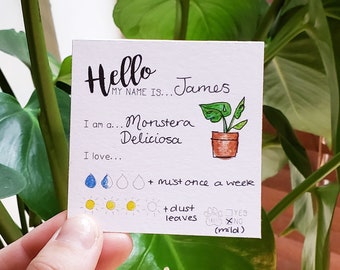 Hello
MY NAME IS... James
I am a... Monstera
Deliciosa
I love...
+ mist once a week
+ dust
leaves
YES
NO
(mild)